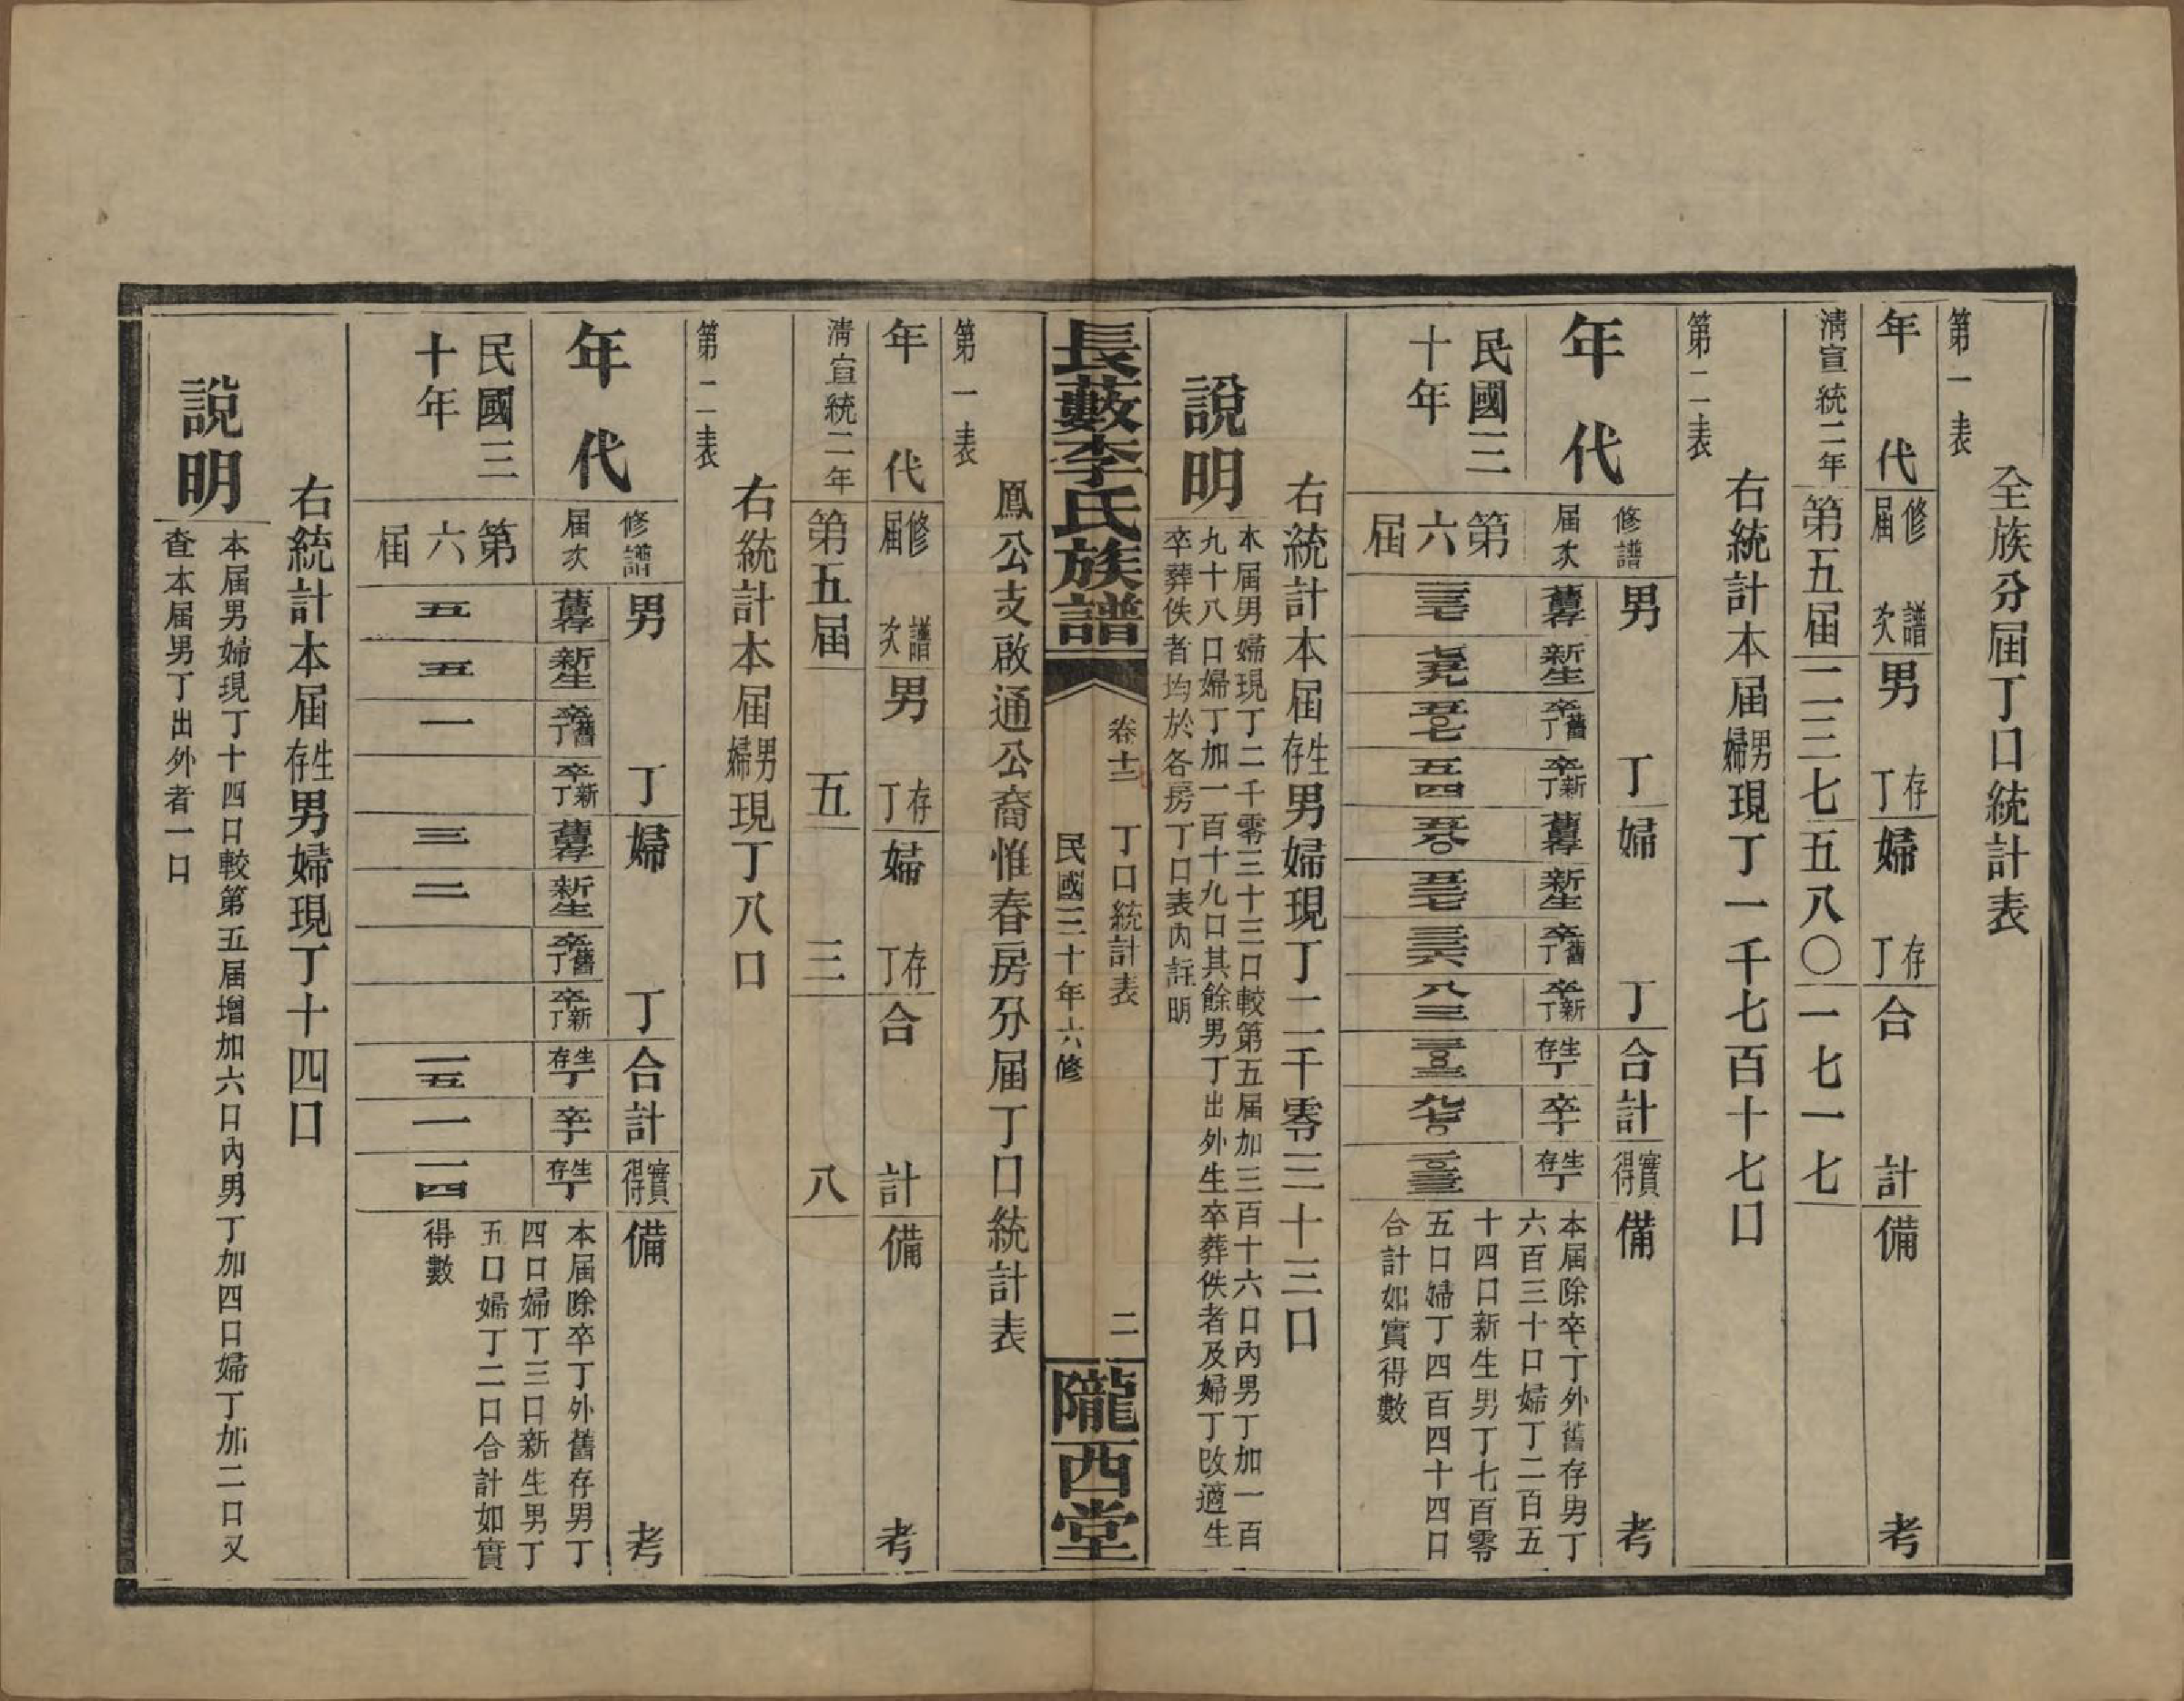 全族分届丁口統計表
第一表
年代 修譜届次 男丁存 婦丁存 合計 備考
清宣統二年 第五届 一一三七 五八〇 一七一七
右統計本届男婦現丁一千七百十七口
第二表
年代 修譜届次 男丁 婦丁 合計 實得 備考
舊存 新生 舊丁卒 新丁卒 舊存 新生 舊丁卒 新丁卒 生存丁 卒丁 生存丁
民國三十年 第六届
本届除卒丁外舊存男丁
六百三十口婦丁二百五
十四口新生男丁七百零
五口婦丁四百四十四口
合計如實得數
右統計本届生存男婦現丁二千零三十三口
說明
本届男婦現丁二千零三十三口較第五届加三百十六口內男丁加一百
九十八口婦丁加一百十九口其餘男丁出外生卒葬佚者及婦丁改適生
卒葬佚者均於各房丁口表內註明
長藪李氏族譜
卷十二 丁口統計表
民國三十年六修
二
隴西堂
鳳公支啟通公裔惟春房分届丁口統計表
第一表
年代 修譜届次 男丁存 婦丁存 合計 備考
清宣統二年 第五届 五 三 八
右統計本届男婦現丁八口
第二表
年代 修譜届次 男丁 婦丁 合計 實得 備考
舊存 新生 舊丁卒 新丁卒 舊存 新生 舊丁卒 新丁卒 生存丁 卒丁 生存丁
民國三十年 第六届 五 五 一 三 二 一五 一 一四
本届除卒丁外舊存男丁
四口婦丁三口新生男丁
五口婦丁二口合計如實
得數
右統計本届生存男婦現丁十四口
說明
本届男婦現丁十四口較第五届增加六口內男丁加四口婦丁加二口又
查本届男丁出外者一口